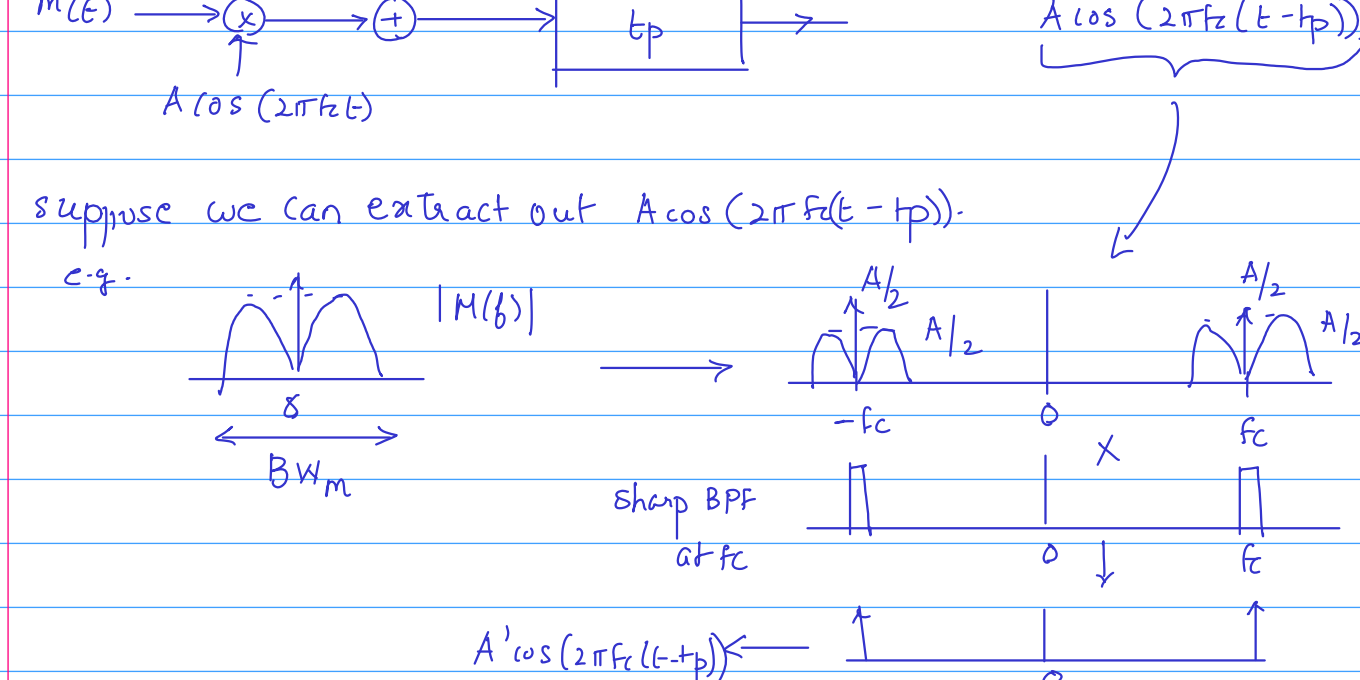 M(t) → (×) → (+) → tp → A cos (2πfc(t-tp))
A cos (2πfct)
suppose we can extract out A cos (2πfc(t-tp)).
e.g.
|M(f)| A/2 A/2 A/2 A/2
0
-fc 0 fc
BWm
×
sharp BPF
at fc 0 fc
A'cos(2πfc(t-tp))
0